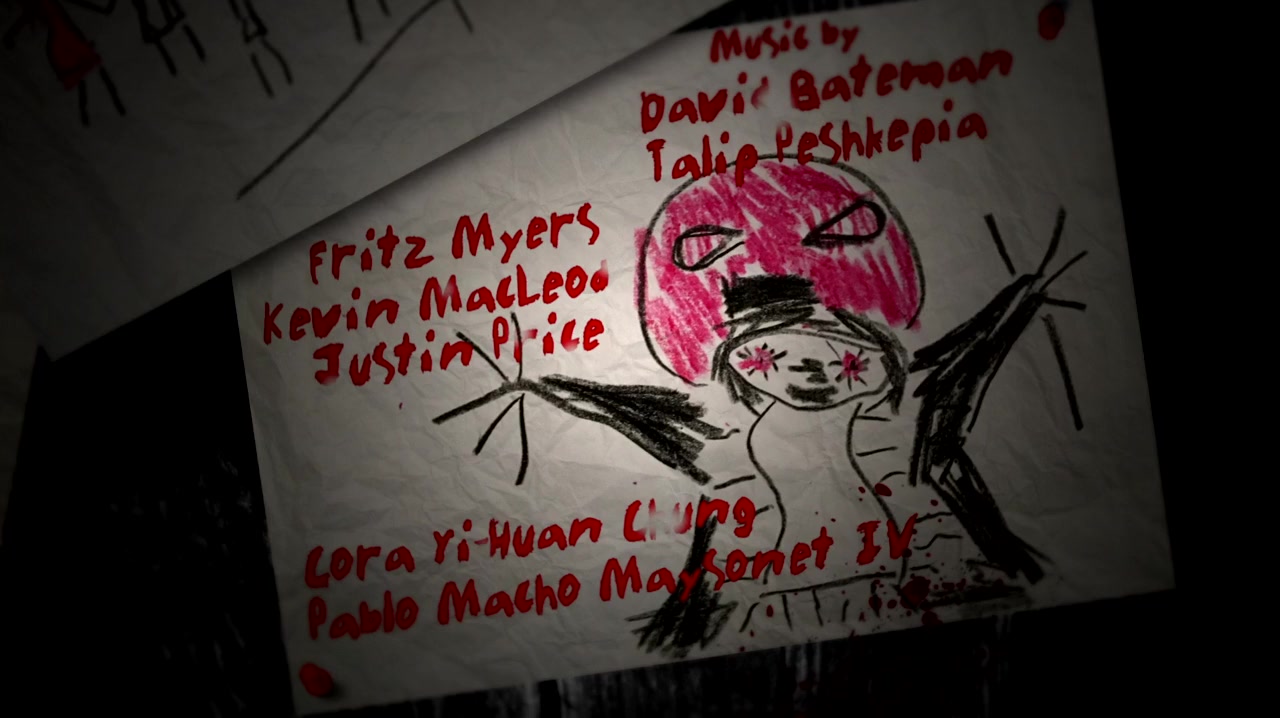 Music by
David Bateman
Talip Peshkepia
Fritz Myers
Kevin MacLeod
Justin Price
Cora Yi-Huan Chung
Pablo Macho Maysonet IV